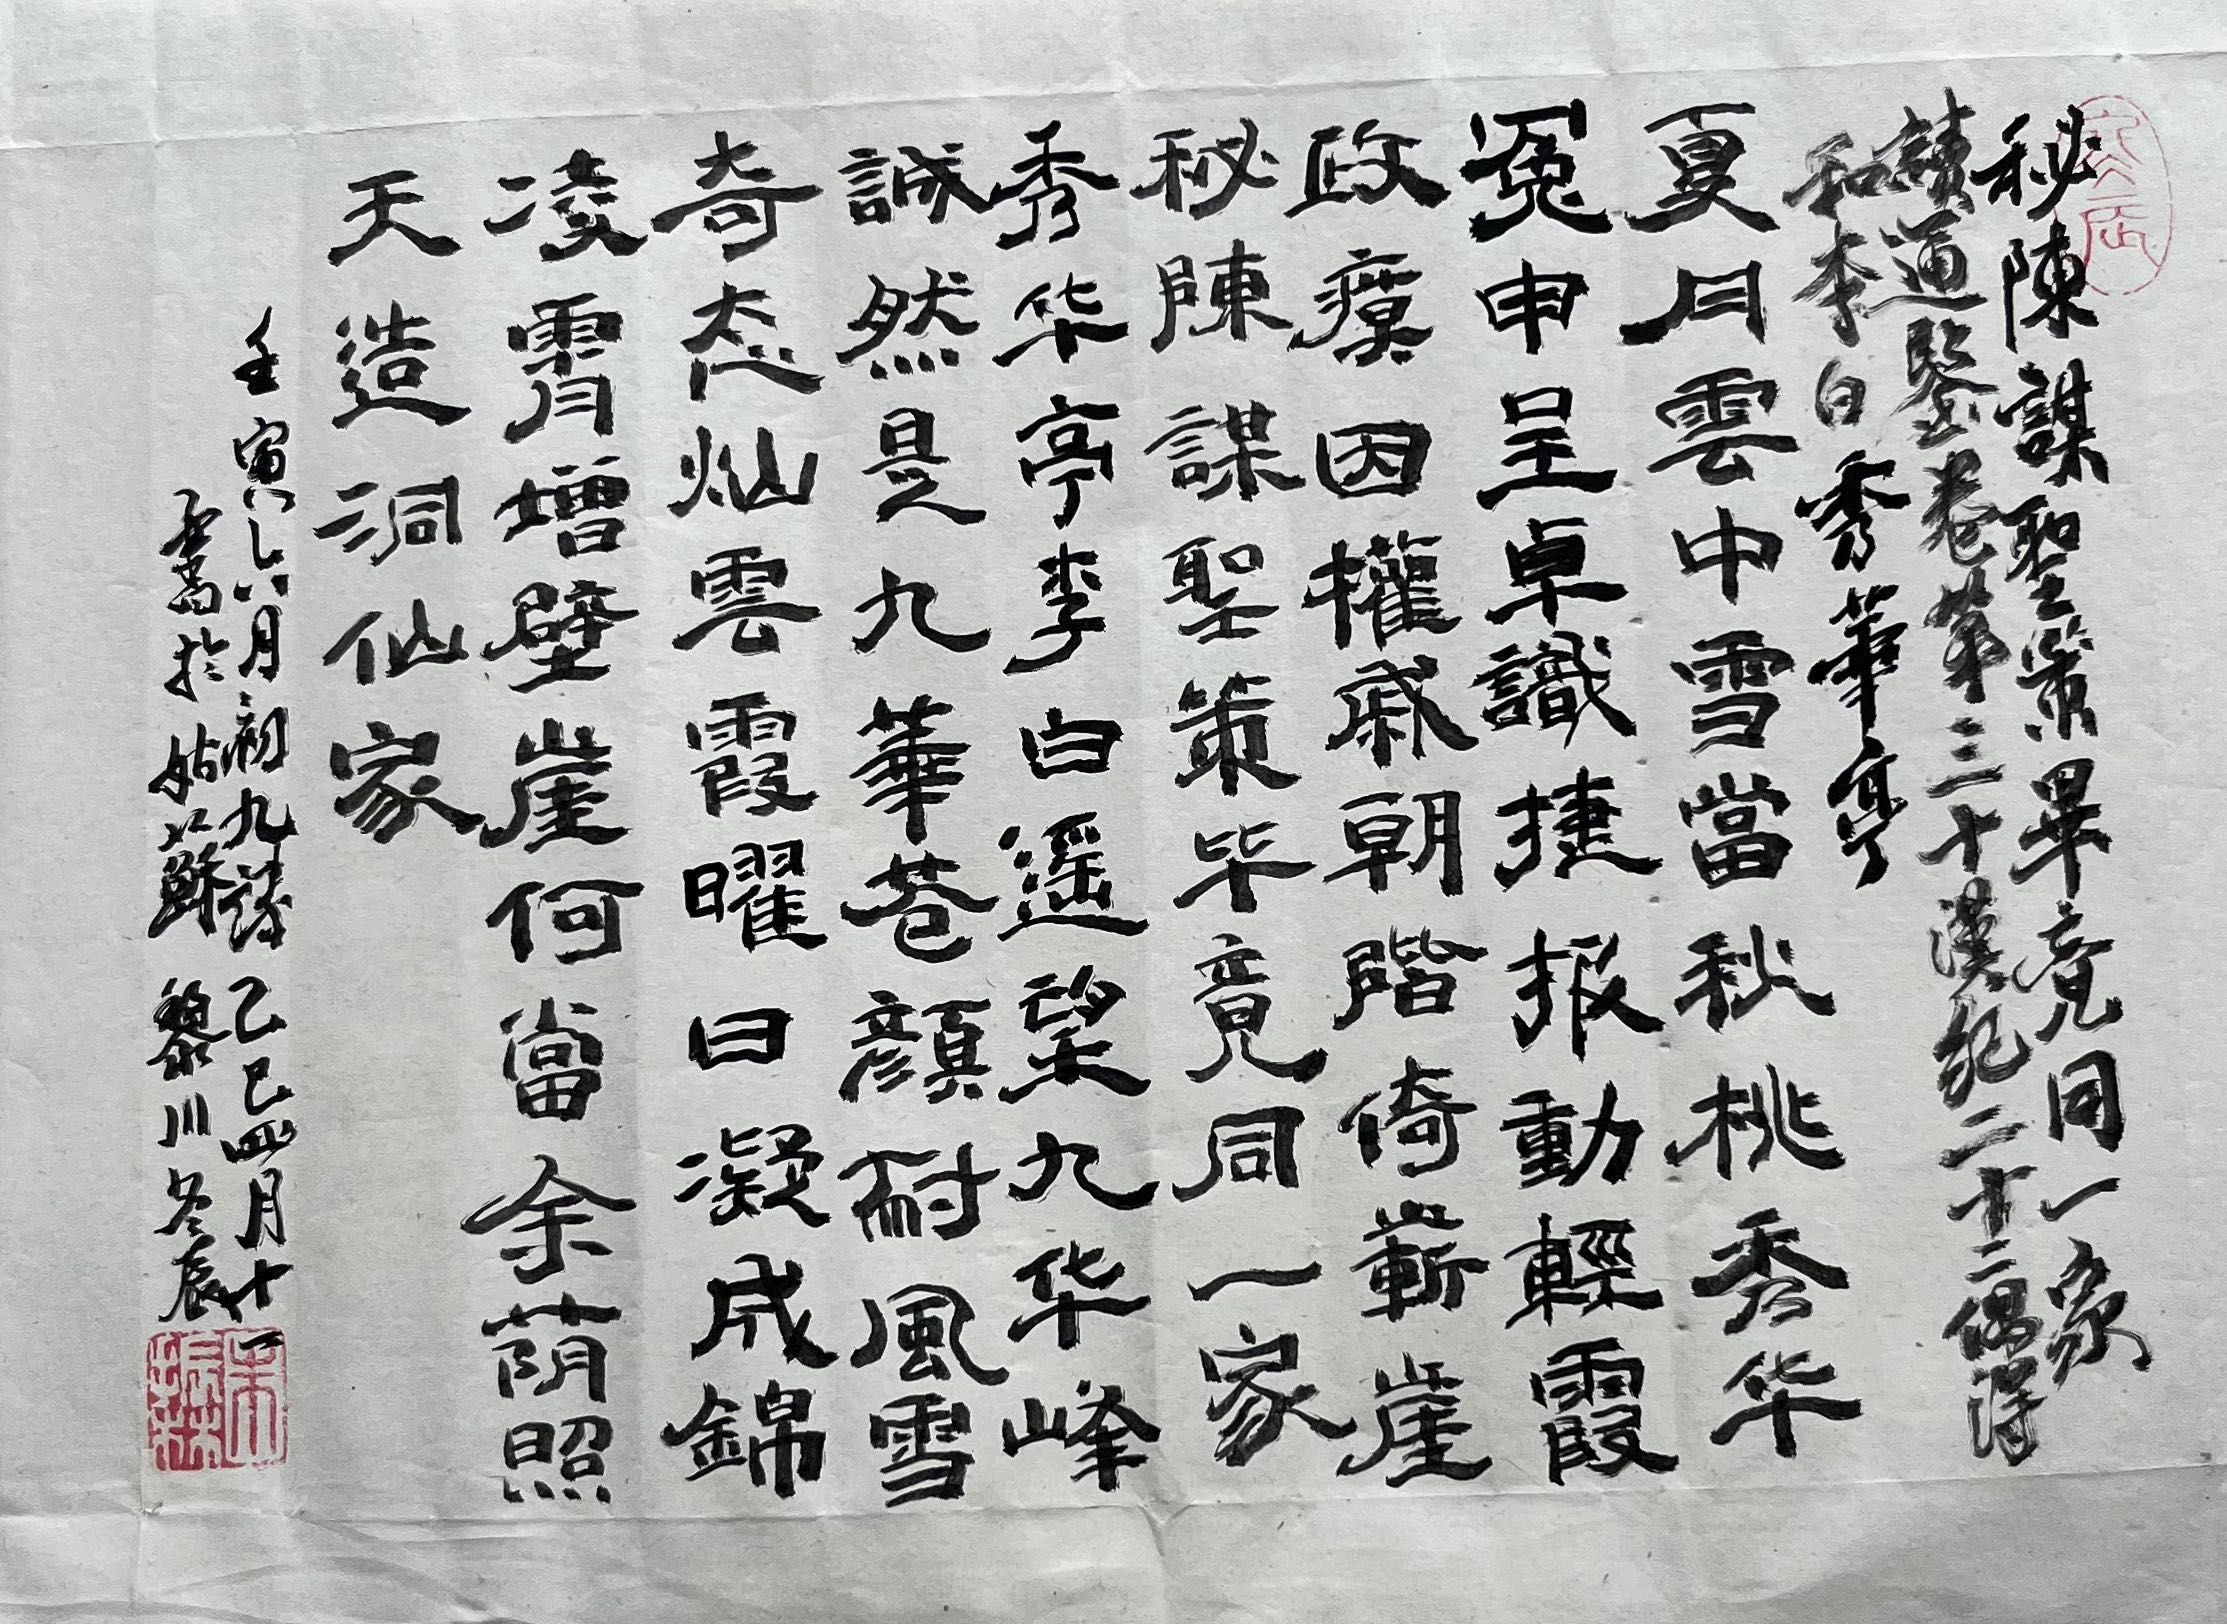 秘陳謀聖策畢竟同一家
讀通鑒卷第三十漢紀二十二偶得
和李白秀華亭
夏日雲中雪當秋桃秀华
冤申呈卓識捷报動輕霞
政瘼因權戚朝階倚嶄崖
秘陳謀聖策毕竟同一家
秀华亭李白遥望九华峰
誠然是九華苍顏耐風雪
奇态灿雲霞曜日凝成錦
凌霄增壁崖何當余荫照
天造洞仙家
壬寅六月初九詩乙巳四月十一
書於姑蘇黎川冬辰